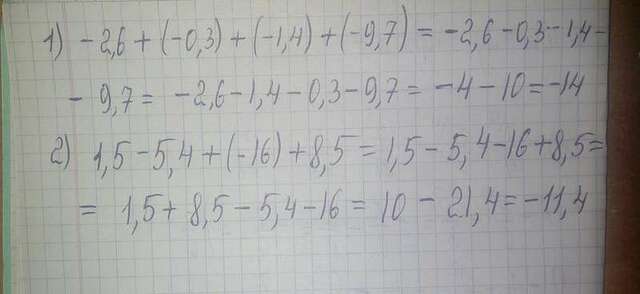 1) -2,6 + (-0,3) + (-1,4) + (-9,7) = -2,6 - 0,3 - 1,4 -
- 9,7 = -2,6 - 1,4 - 0,3 - 9,7 = -4 - 10 = -14
2) 1,5 - 5,4 + (-16) + 8,5 = 1,5 - 5,4 - 16 + 8,5 =
= 1,5 + 8,5 - 5,4 - 16 = 10 - 21,4 = -11,4